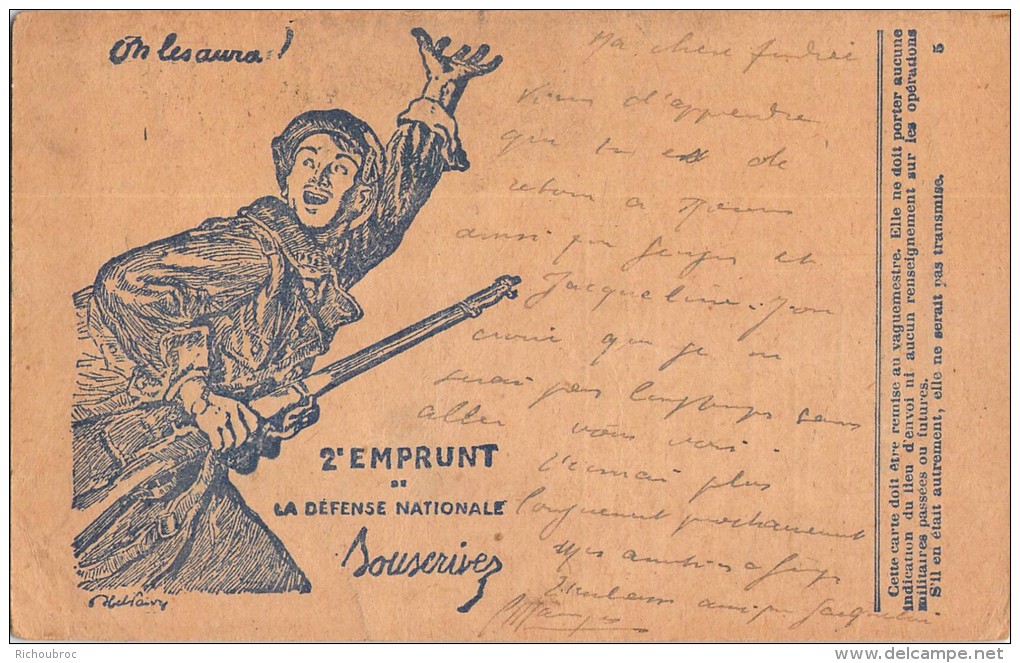 On les aura !
2e EMPRUNT
DE
LA DÉFENSE NATIONALE
Souscrivez
Abel Faivre
Ma chère
Viens d'apprendre
que tu es de
retour a
ainsi que et
Jacqueline.
croire que je ne
serai pas longtemps sans
aller vous voir.
plus
longuement prochainement
aussi que Jacqueline
Cette carte doit être remise au vaguemestre. Elle ne doit porter aucune
indication du lieu d'envoi ni aucun renseignement sur les opérations
militaires passées ou futures.
S'il en était autrement, elle ne serait pas transmise.
5
Richoubroc
delcampe.net